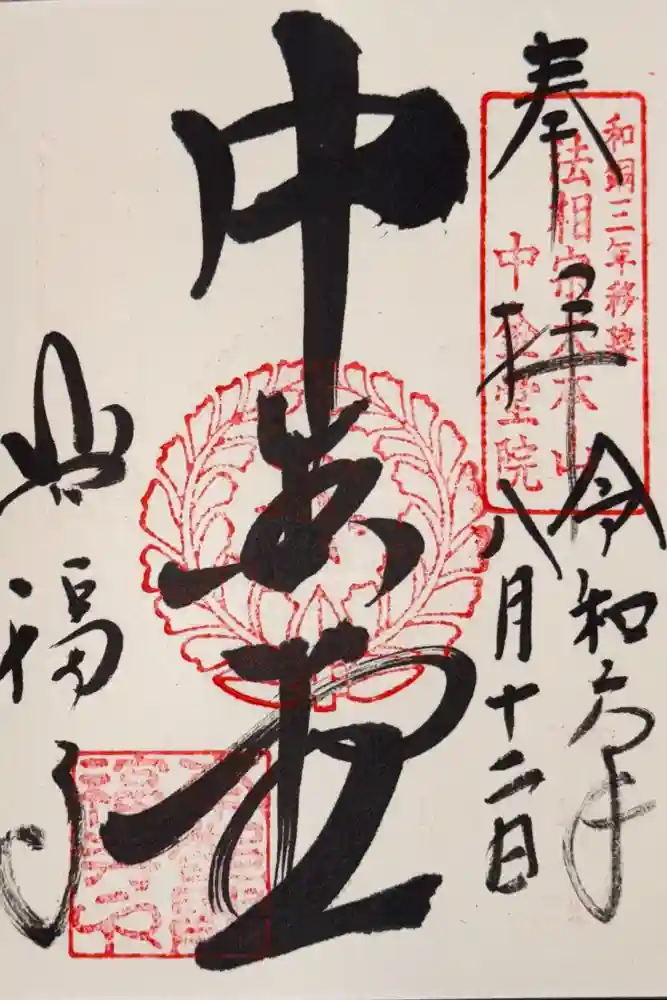 和銅三年移建
法相宗大本山
中金堂院
奉拝
令和六年
八月十二日
中金堂
興福寺